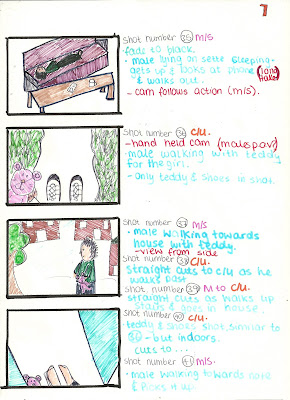 7
shot number 35 m/s
fade to black.
• male lying on sette sleeping -
gets up & looks at phone (long
& walks out. take)
- cam follows action (m/s).
shot number 36 c/u.
- hand held cam (males pov)
male walking with teddy
for the girl.
- only teddy & shoes in shot.
shot number 37 m/s
• male walking towards
house with teddy.
- view from side
shot number 38 c/u
Straight cuts to c/u as he
walks past
shot number 39 M to c/u.
straight cuts as walks up
stairs & goes in house.
shot number 40 c/u.
teddy & shoes shot, similar to
- but indoors.
cuts to ...
shot number 41 m/s.
• male walking towards note
& picks it up.